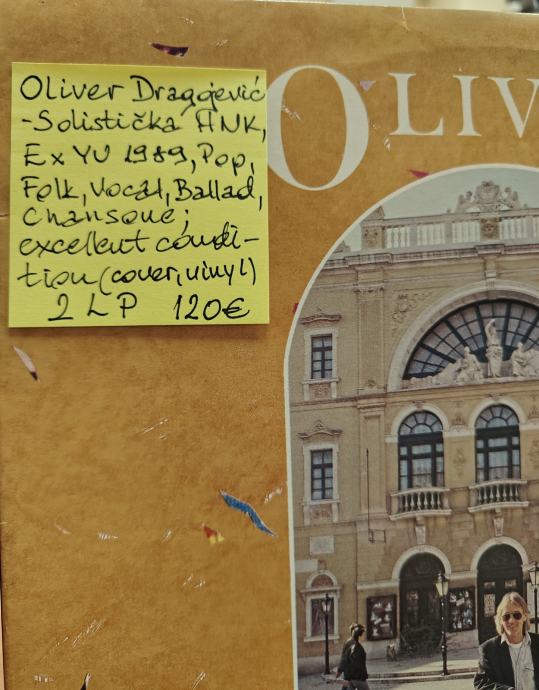 Oliver Dragojević
-Solistička HNK,
Ex YU 1989, Pop,
Folk, Vocal, Ballad,
Chansone;
excellent condi-
tion (cover, vinyl)
2 LP 120€
OLIV